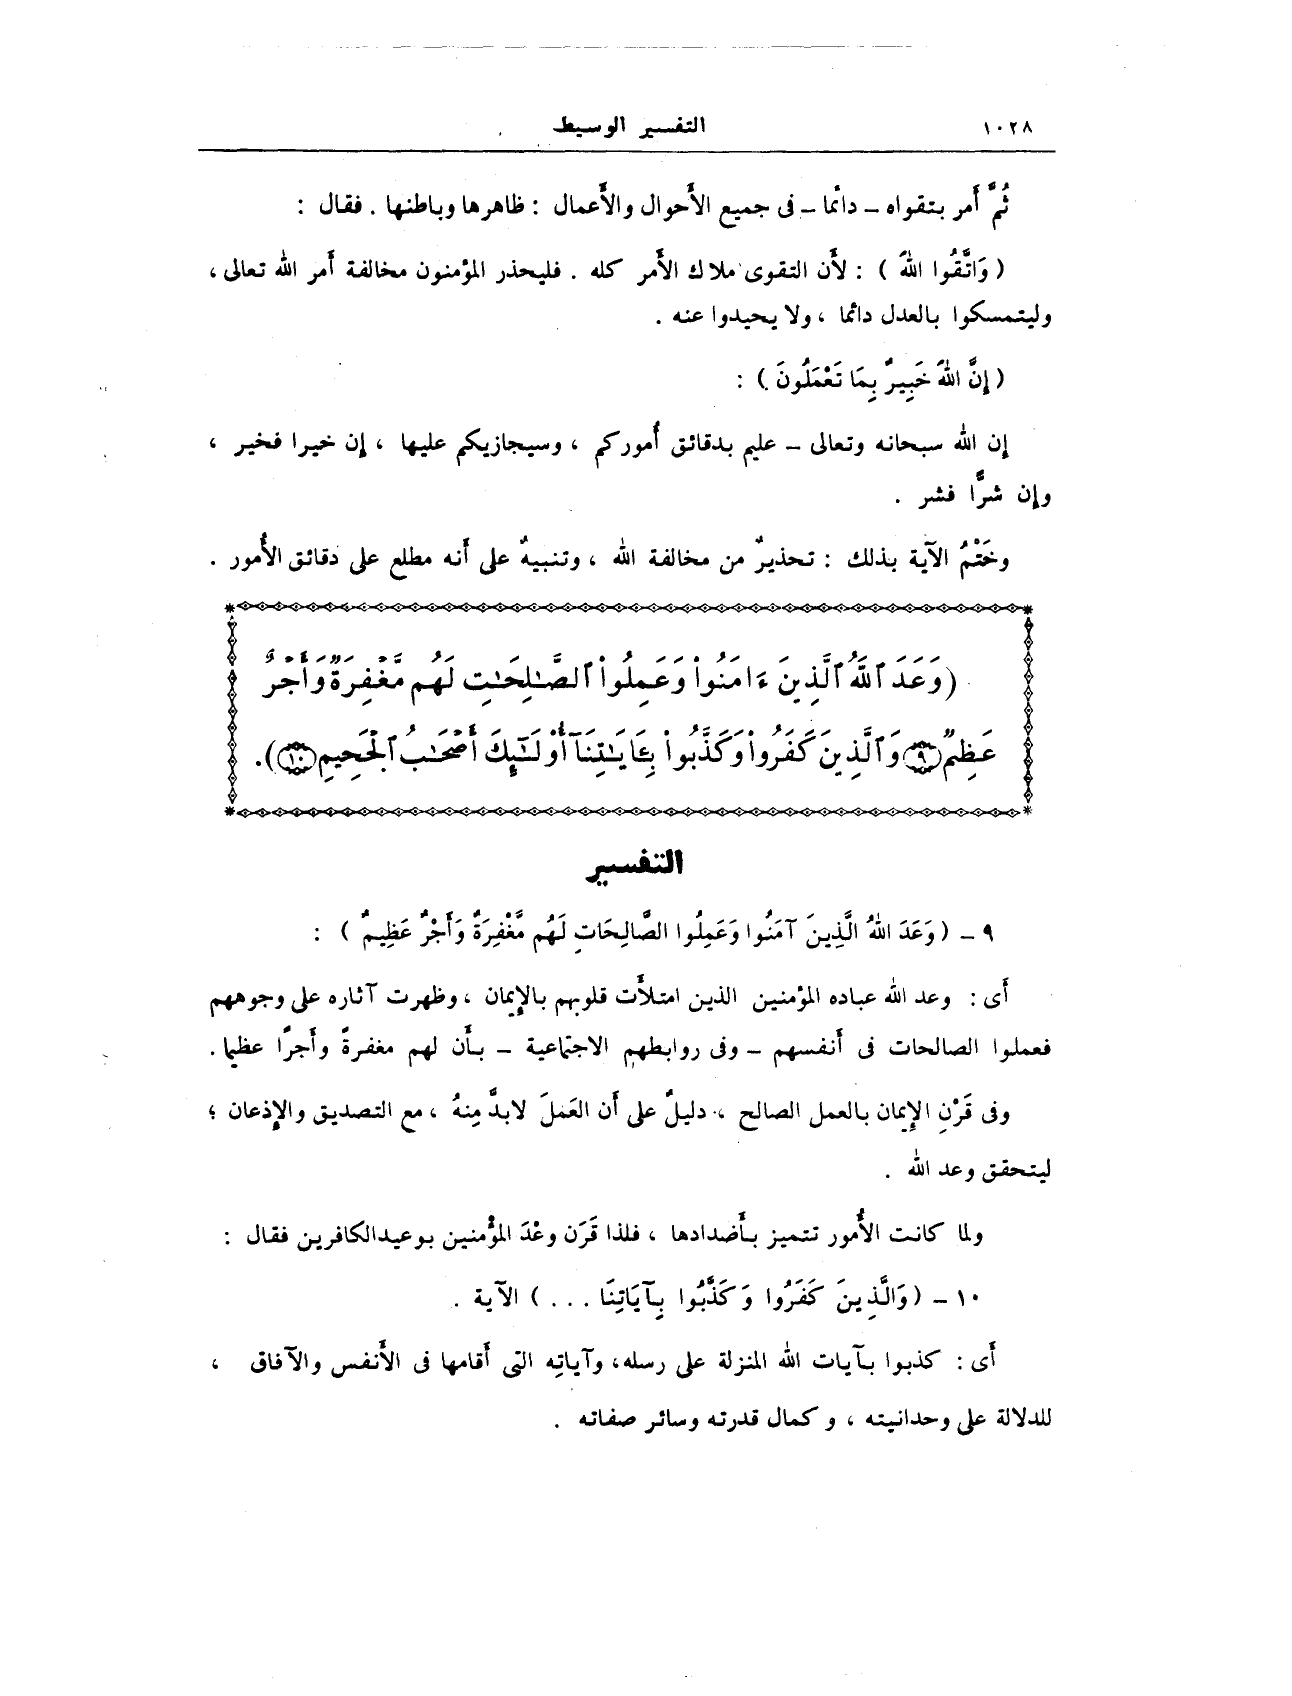 ١٠٢٨
التفسير الوسيط
ثُمَّ أَمر بتقواه ـ دائما ـ فى جميع الأَحوال والأَعمال : ظاهرها وباطنها . فقال :
( وَاتَّقُوا اللهَ ) : لأَن التقوى ملاك الأَمر كله . فليحذر المؤمنون مخالفة أَمر الله تعالى ،
وليتمسكوا بالعدل دائما ، ولا يحيدوا عنه .
( إِنَّ اللهَ خَبِيرٌ بِمَا تَعْمَلُونَ ) :
إن الله سبحانه وتعالى ـ عليم بدقائق أُموركم ، وسيجازيكم عليها ، إن خيرا فخير ،
وإن شرًّا فشر .
وخَتْمُ الآية بذلك : تحذيرٌ من مخالفة الله ، وتنبيهٌ على أَنه مطلع على دقائق الأُمور .
(وَعَدَ ٱللَّهُ ٱلَّذِينَ ءَامَنُواْ وَعَمِلُواْ ٱلصَّـٰلِحَـٰتِ لَهُم مَّغْفِرَةٌ وَأَجْرٌ
عَظِيمٌ ۝٩ وَٱلَّذِينَ كَفَرُواْ وَكَذَّبُواْ بِـَٔايَـٰتِنَآ أُوْلَـٰٓئِكَ أَصْحَـٰبُ ٱلْجَحِيمِ ۝١٠).
التفسير
٩ ـ ( وَعَدَ اللهُ الَّذِينَ آمَنُوا وَعَمِلُوا الصَّالِحَاتِ لَهُم مَّغْفِرَةٌ وَأَجْرٌ عَظِيمٌ ) :
أَى : وعد الله عباده المؤمنين الذين امتلأَت قلوبهم بالإِيمان ، وظهرت آثاره على وجوههم
فعملوا الصالحات فى أَنفسهم ـ وفى روابطهم الاجتماعية ـ بأَن لهم مغفرةً وأَجرًا عظيما .
وفى قَرْنِ الإِيمان بالعمل الصالح ، دليلٌ على أَن العَملَ لابدَّ مِنهُ ، مع التصديق والإِذعان ؛
ليتحقق وعد الله .
ولما كانت الأُمور تتميز بأَضدادها ، فلذا قَرَن وعْدَ المؤْمنين بوعيدالكافرين فقال :
١٠ ـ ( وَالَّذِينَ كَفَرُوا وَكَذَّبُوا بِآيَاتِنَا . . . ) الآية .
أَى : كذبوا بآيات الله المنزلة على رسله، وآياتِه التى أَقامها فى الأَنفس والآفاق ،
للدلالة على وحدانيته ، وكمال قدرته وسائر صفاته .